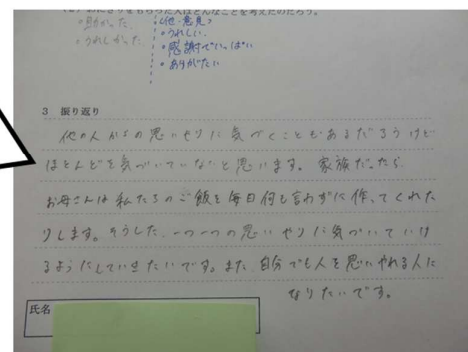 (2) おにぎりをもらった人はどんなことを考えたのだろう。
・助かった。
・うれしかった
<他・意見>
・うれしい、
・感謝でいっぱい
・ありがたい
3 振り返り
他の人からの思いやりに気づくこともあるだろうけど
ほとんどを気づいていないと思います。家族だったら、
お母さんは私たちのご飯を毎日何も言わずに作ってくれた
りします。そうした、一つ一つの思いやりに気づいていけ
るようにしていきたいです。また、自分でも人を思いやれる人に
なりたいです。
氏名